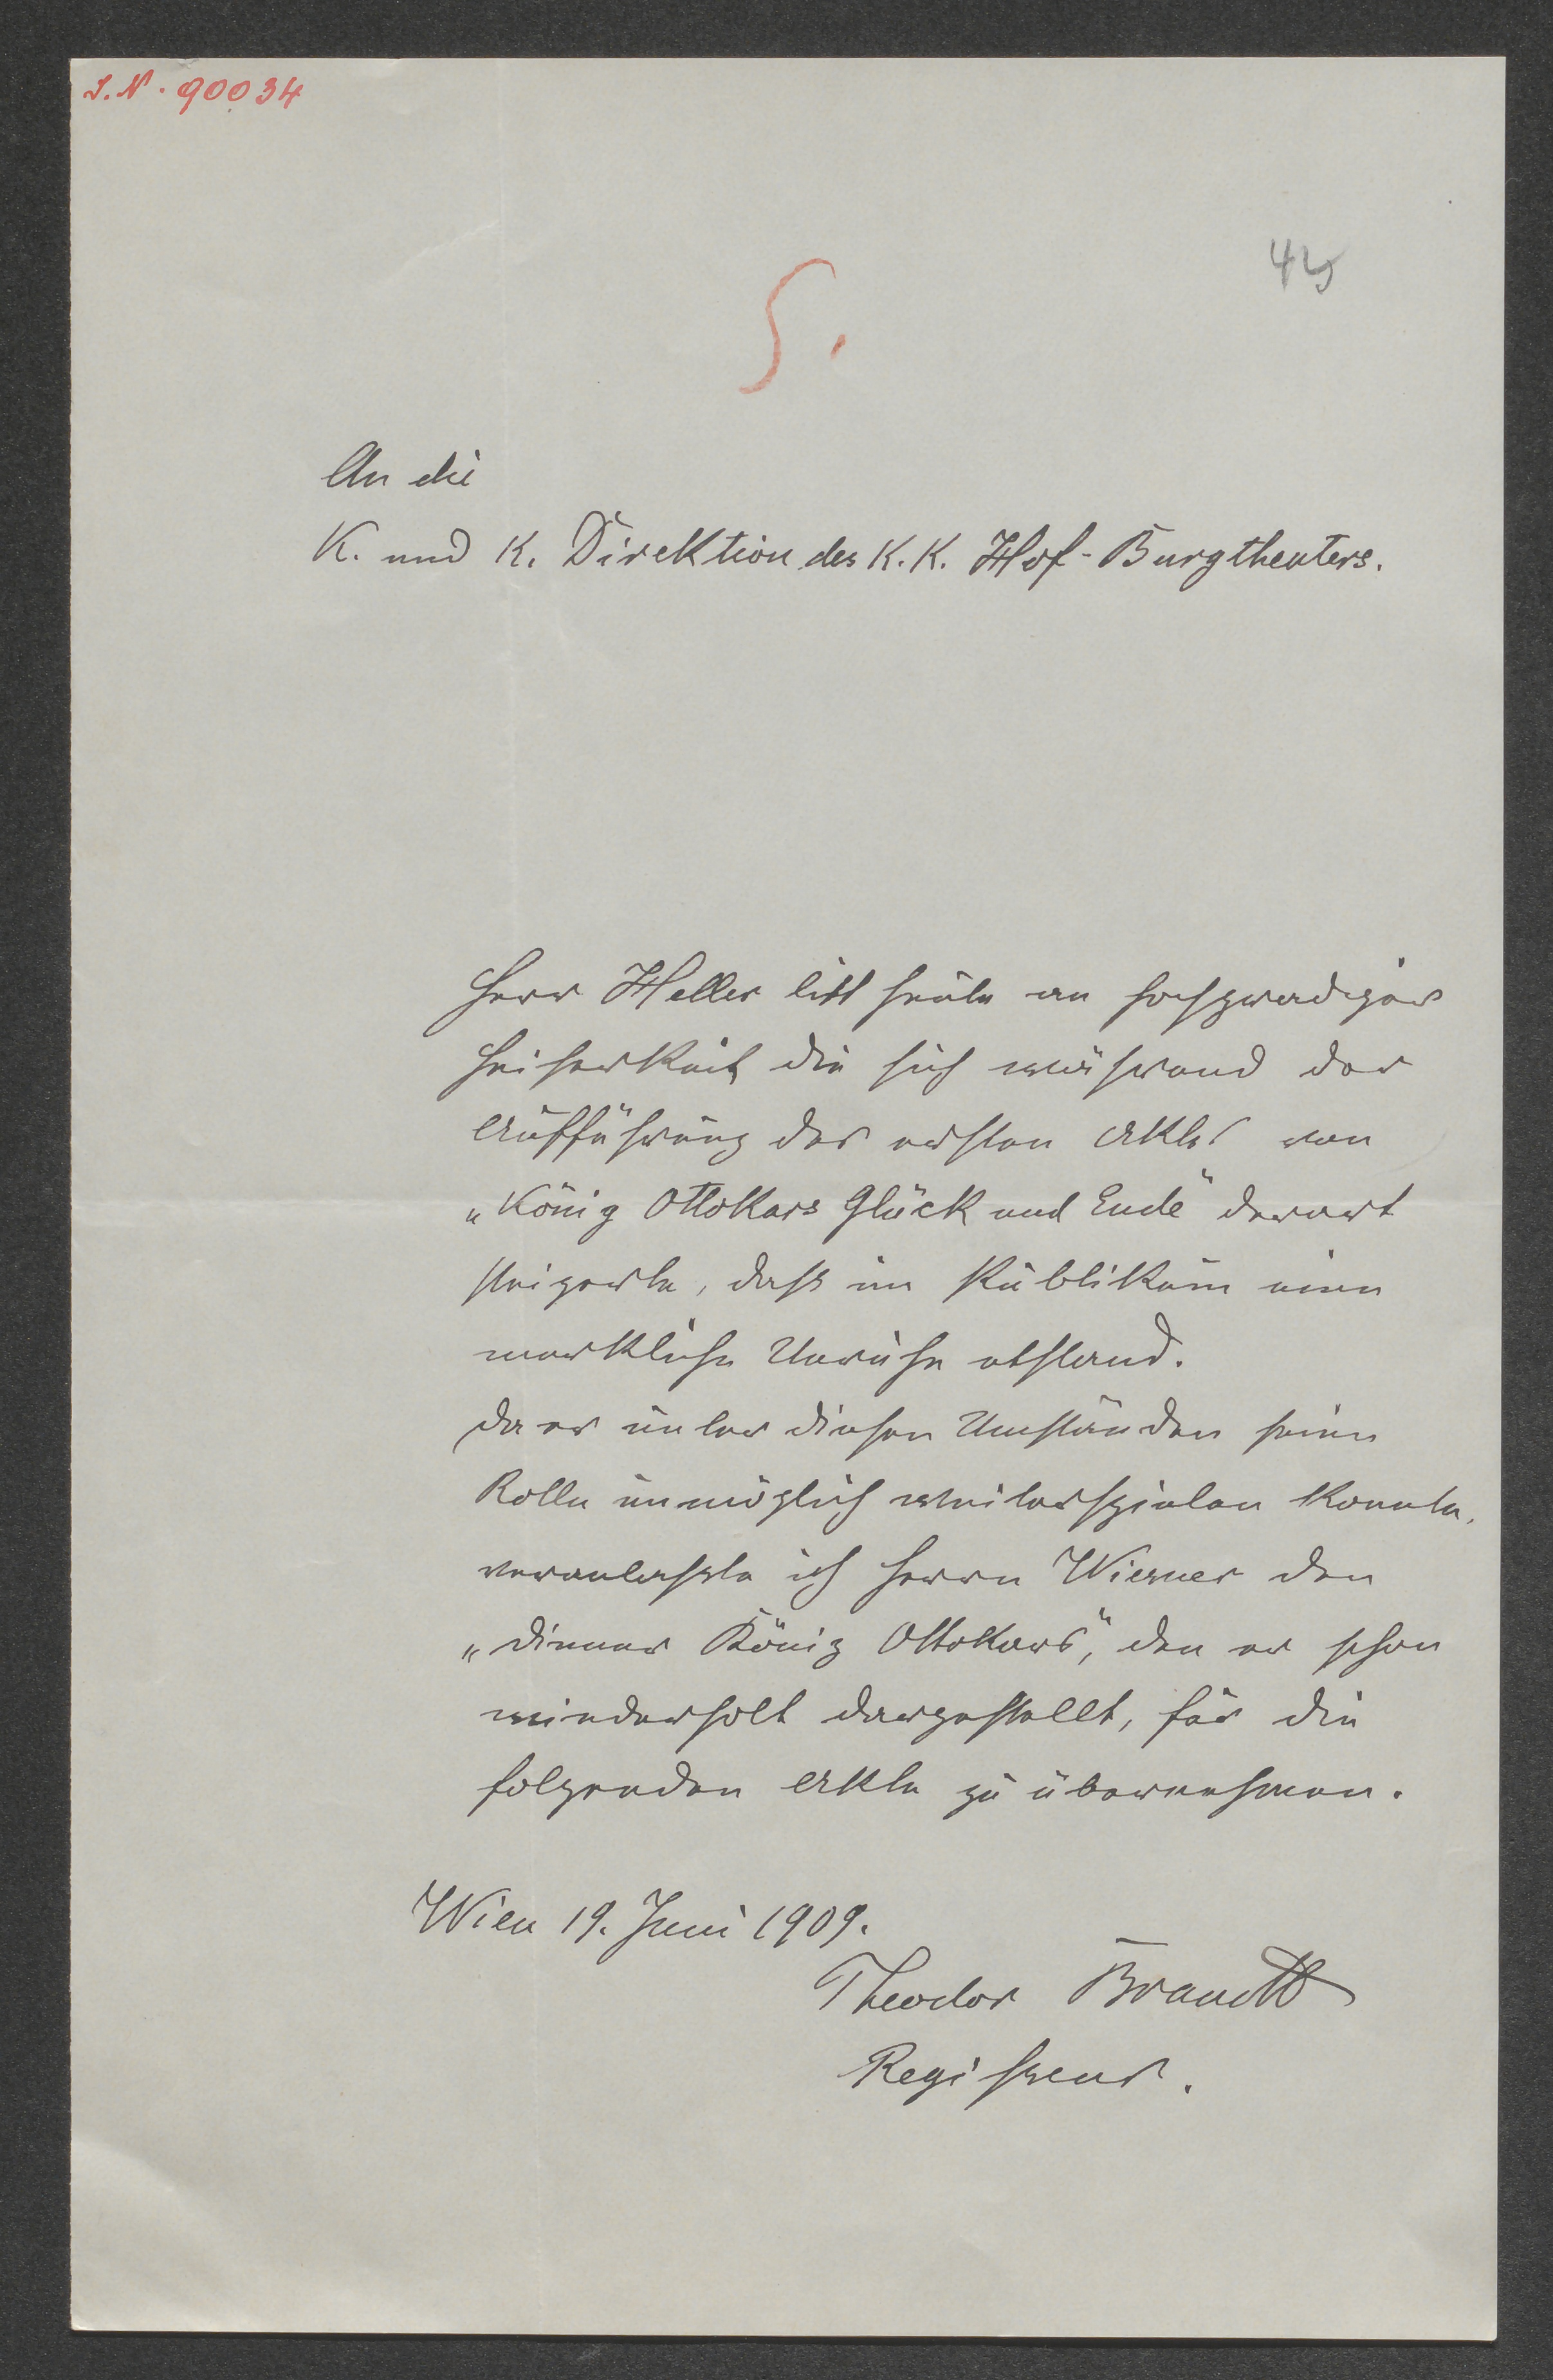 I.N. 90034
S.
An die
K. und K. Direktion des K.K. Hof-Burgtheaters.
Herr Heller litt heute an hochgradiger
Heiserkeit die sich während der
Aufführung des ersten Aktes von
„König Ottokars Glück und Ende“ derart
steigerte, dass im Publikum eine
merkliche Unruhe entstand.
Da er unter diesen Umständen seine
Rolle unmöglich weiterspielen konnte,
veranlasste ich Herrn Wiesner den
„Diener König Ottokars“, den er schon
wiederholt dargestellt, für die
folgenden Akte zu übernehmen.
Wien 19. Juni 1909.
Theodor Brandt
Regisseur.